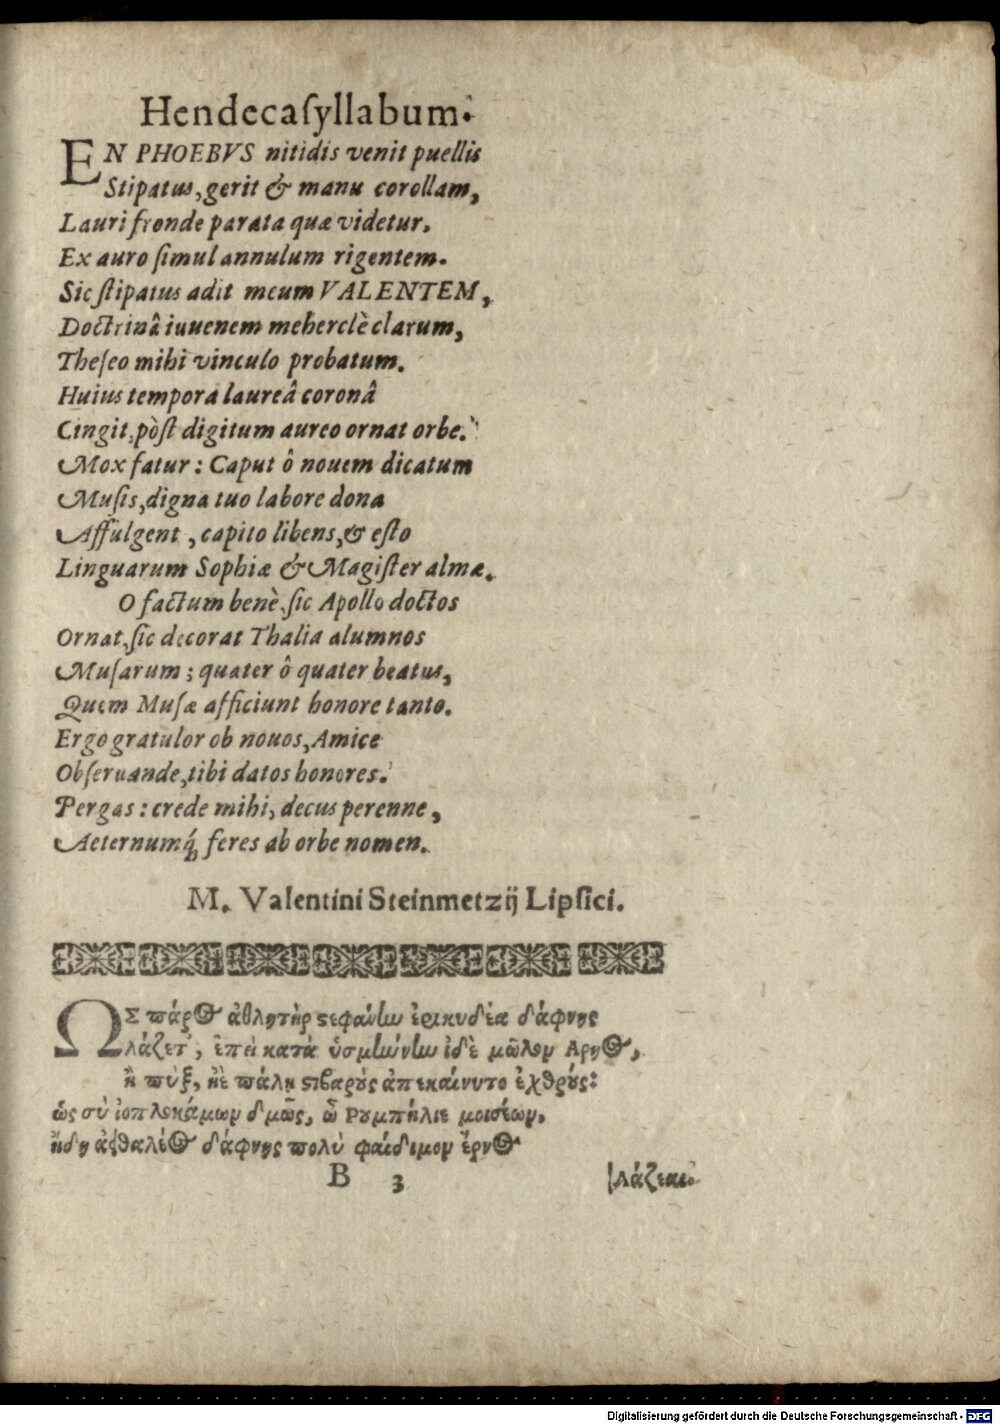 Hendecaſyllabum.
EN PHOEBVS nitidis venit puellis
Stipatus, gerit & manu corollam,
Lauri fronde parata quæ videtur.
Ex auro ſimul annulum rigentem.
Sic ſtipatus adit meum VALENTEM,
Doctrinâ iuuenem meherclè clarum,
Theſeo mihi vinculo probatum.
Huius tempora laureâ coronâ
Cingit, pòſt digitum aureo ornat orbe.
Mox fatur: Caput ô nouem dicatum
Muſis, digna tuo labore dona
Affulgent, capito libens, & eſto
Linguarum Sophiæ & Magiſter almæ.
O factum benè, ſic Apollo doctos
Ornat, ſic decorat Thalia alumnos
Muſarum; quater ô quater beatus,
Quem Muſæ afficiunt honore tanto.
Ergo gratulor ob nouos, Amice
Obſeruande, tibi datos honores.
Pergas: crede mihi, decus perenne,
Aeternumq́ feres ab orbe nomen.
M. Valentini Steinmetzij Lipſici.
ΩΣ πάρος ἀθλητὴρ ϛεφαύνων ἐρικυδέα δάφνης
λάζετ', ἐπεὶ κατὰ ὑσμίνην ἰδὲ μῶλον Αρηος,
ἢ πὺξ, ἠὲ πάλῃ ϛιβαροὺς ἀπεκαίνυτο ἐχθρούς:
ὡς σὺ ἰοπλοκάμων δμωῒς, ὦ Ρυμπήλιε μοισέων,
ἤδη ἀζαλέος δάφνης πολὺ φαίδιμον ἔρνος
B 3
Λάζεαι.
Digitalisierung gefördert durch die Deutsche Forschungsgemeinschaft - DFG